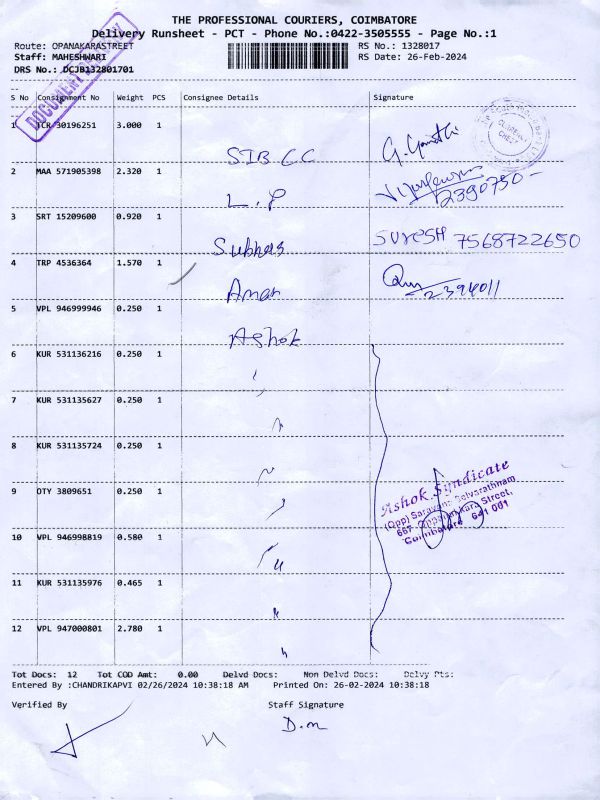 THE PROFESSIONAL COURIERS, COIMBATORE
Delivery Runsheet - PCT - Phone No.:0422-3505555 - Page No.:1
Route: OPANAKARASTREET RS No.: 1328017
Staff: MAHESHWARI RS Date: 26-Feb-2024
DRS No.: DCJB132801701
S No Consignment No Weight PCS Consignee Details Signature
1 TCR 30196251 3.000 1
STB CC
2 MAA 571905398 2.320 1
L.P 2390750-
3 SRT 15209600 0.920 1
Subhas SUresH 7568722650
4 TRP 4536364 1.570 1
Aman 2394011
5 VPL 946999946 0.250 1
Ashok
6 KUR 531136216 0.250 1
7 KUR 531135627 0.250 1
8 KUR 531135724 0.250 1
9 OTY 3809651 0.250 1
Ashok Syndicate
(Opp) Saravana Selvarathnam
667, Oppanakkara Street,
Coimbatore 641 001
10 VPL 946998819 0.580 1
11 KUR 531135976 0.465 1
12 VPL 947000801 2.780 1
Tot Docs: 12 Tot COD Amt: 0.00 Delvd Docs: Non Delvd Docs: Delvy Pts:
Entered By :CHANDRIKAPVI 02/26/2024 10:38:18 AM Printed On: 26-02-2024 10:38:18
Verified By Staff Signature
D.m